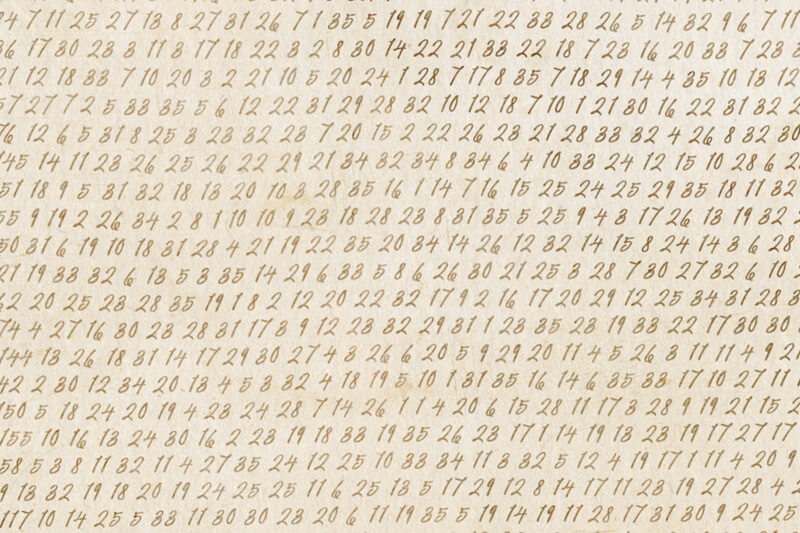 84 7 11 25 27 13 8 27 31 26 7 1 35 5 19 19 7 21 22 33 28 26 5 14 32 9 6 7 11
36 17 30 23 3 11 3 17 18 22 3 2 8 30 14 22 21 33 22 18 7 23 16 20 33 7 23 3
21 12 18 33 7 10 20 3 2 21 10 5 20 24 1 28 7 17 8 35 7 18 29 14 4 35 10 13 12
57 27 7 2 5 33 35 5 6 12 22 31 29 28 32 10 12 18 7 10 1 21 30 16 22 31 32 2
76 12 6 5 31 8 25 3 23 32 23 7 20 15 2 22 26 23 21 28 33 32 4 26 8 32 30
145 14 11 23 26 25 26 22 29 21 34 32 34 8 34 6 4 10 33 24 12 15 10 28 6 2
51 18 9 5 31 32 18 13 20 10 3 28 35 16 1 14 7 16 15 25 24 25 29 35 18 11 32
55 9 19 2 26 34 2 8 1 10 10 9 23 18 28 23 8 31 35 5 25 9 4 3 17 26 13 19 32 2
50 31 6 19 10 18 31 28 4 21 19 22 35 20 34 14 26 12 32 14 15 8 24 14 3 6 28
21 19 33 32 6 13 5 3 35 14 29 6 33 5 8 6 26 30 21 25 3 28 7 30 27 32 6 10 2
62 20 25 23 28 35 19 1 8 2 12 20 22 32 17 9 2 16 17 20 29 12 25 34 31 28 3
74 4 27 16 30 23 28 31 17 3 9 12 23 32 29 31 1 23 35 23 19 33 22 17 30 30
144 13 26 18 31 14 17 29 30 27 4 3 26 6 20 5 9 29 20 11 4 5 26 3 11 11 4 9 21
42 2 30 12 34 20 13 4 5 3 32 4 18 19 5 10 1 31 35 16 14 6 35 33 17 10 27 11
150 5 18 24 20 19 4 23 24 28 7 14 26 1 1 4 20 6 15 28 11 17 3 28 9 19 21 15 2
155 10 16 13 24 30 16 2 23 19 18 33 19 35 26 23 17 1 14 19 13 23 19 17 27 17
58 5 3 8 11 32 11 4 27 35 24 12 25 10 33 34 11 3 32 5 12 4 19 17 1 11 4 20 9
9 13 32 19 18 20 19 24 25 25 11 6 25 13 5 17 29 12 8 14 17 11 19 27 28 4 2
117 10 14 25 5 33 11 30 30 23 20 6 11 19 35 5 19 14 19 11 28 17 31 30 9 24 25